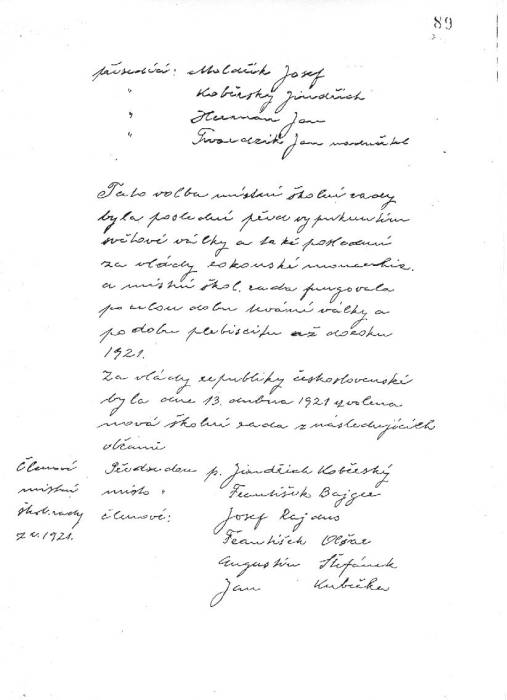 89
přísedící: Moldřík Josef
" Koběrský Jindřich
" Herman Jan
" Tvardzik Jan nadučitel
Tato volba místní školní rady
byla poslední před vypuknutím
světové války a také poslední
za vlády rakouské monarchie.
a místní škol. rada fungovala
po celou dobu trvání války a
po dobu plebiscitu až do roku
1921.
Za vlády republiky československé
byla dne 13. dubna 1921 zvolena
nová školní rada z následujících
občanů
Členové
místní
škol. rady
z r. 1921.
Předsedou p. Jindřich Koběrský
místo " František Bajger
členové: Josef Rajdus
František Olšar
Augustin Štefánek
Jan Kubička